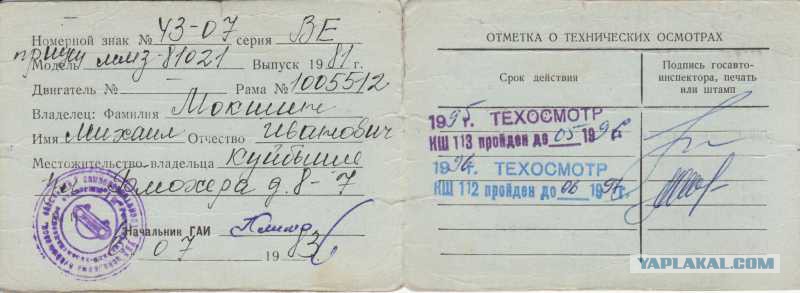 Номерной знак № 43-07 серия ВЕ
прицеп
Модель ммз-81021 Выпуск 1981 г.
Двигатель № Рама № 1005512
Владелец: Фамилия Мокшин
Имя Михаил Отчество Иванович
Местожительство владельца Куйбышев
д. 8-7
Начальник ГАИ
07 1983
ОТМЕТКА О ТЕХНИЧЕСКИХ ОСМОТРАХ
Срок действия
Подпись госавто-
инспектора, печать
или штамп
1995г. ТЕХОСМОТР
КШ 113 пройден до 05 1996г.
1996г. ТЕХОСМОТР
КШ 112 пройден до 06 199 г.
YAPLAKAL.COM